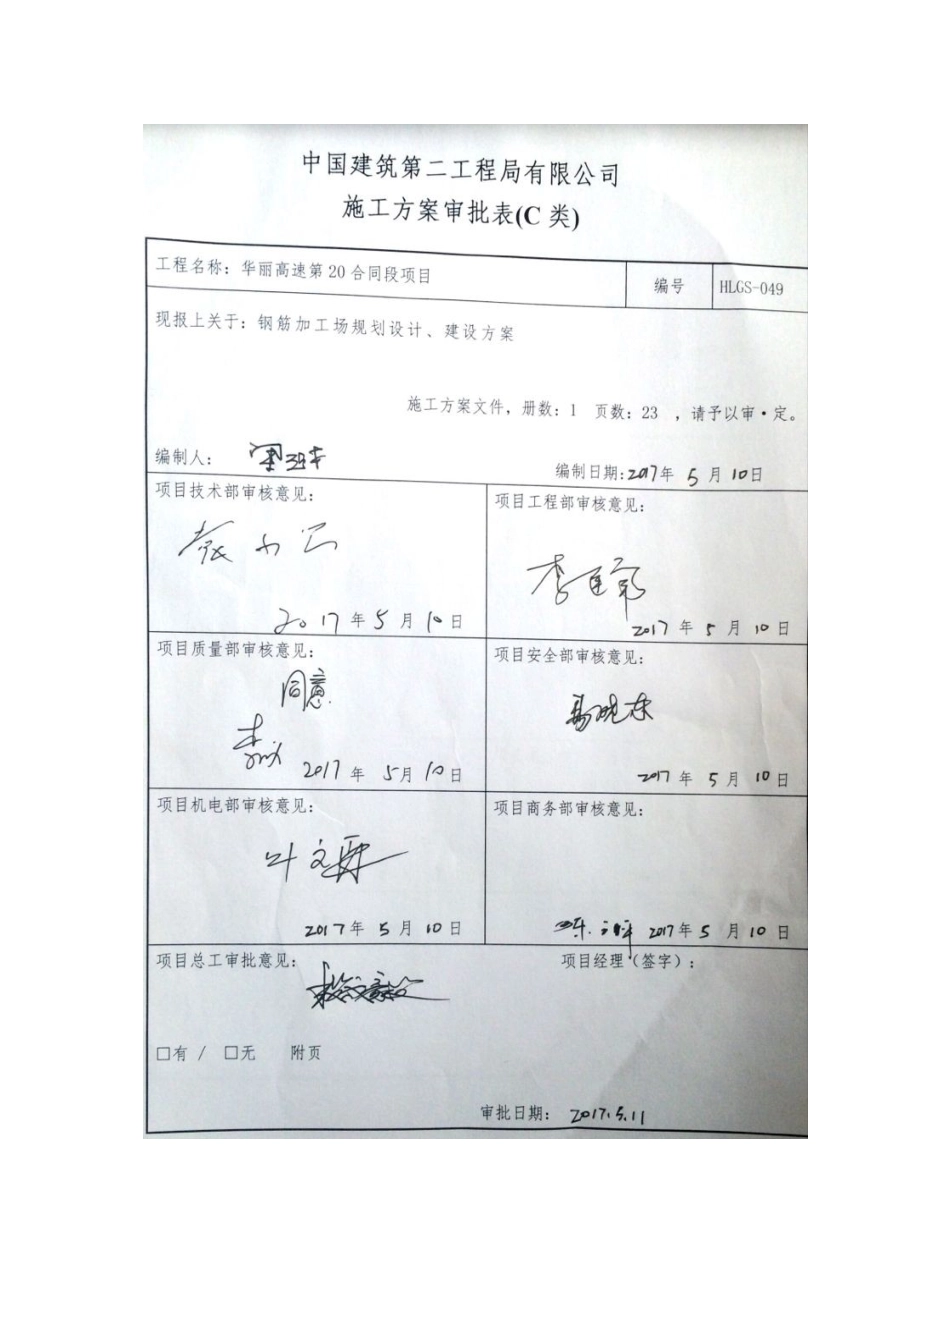 中国建筑第二工程局有限公司
施工方案审批表(C 类)
工程名称：华丽高速第 20 合同段项目
编号
HLGS-049
现报上关于：钢筋加工场规划设计、建设方案
施工方案文件，册数：1 页数：23 ，请予以审·定。
编制人：
编制日期：2017年 5 月 10日
项目技术部审核意见：
2017 年 5 月 10 日
项目工程部审核意见：
2017 年 5 月 10 日
项目质量部审核意见：
同意
2017 年 5月 10 日
项目安全部审核意见：
2017 年 5 月 10 日
项目机电部审核意见：
2017年 5 月 10 日
项目商务部审核意见：
2017年 5 月 10 日
项目总工审批意见：
项目经理（签字）：
□有 / □无 附页
审批日期： 2017.5.11